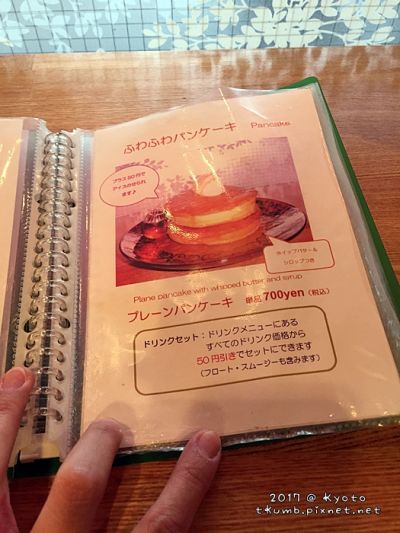 ふわふわパンケーキ Pancake
プラス80円で
アイスのせられ
ます♪
ホイップバター&
シロップつき
Plane pancake with whopped butter and syrup
プレーンパンケーキ 単品 700yen (税込)
ドリンクセット：ドリンクメニューにある
すべてのドリンク価格から
50円引きでセットにできます
(フロート・スムージーも含みます)
2017 @ Kyoto
tkumb.pixnet.net